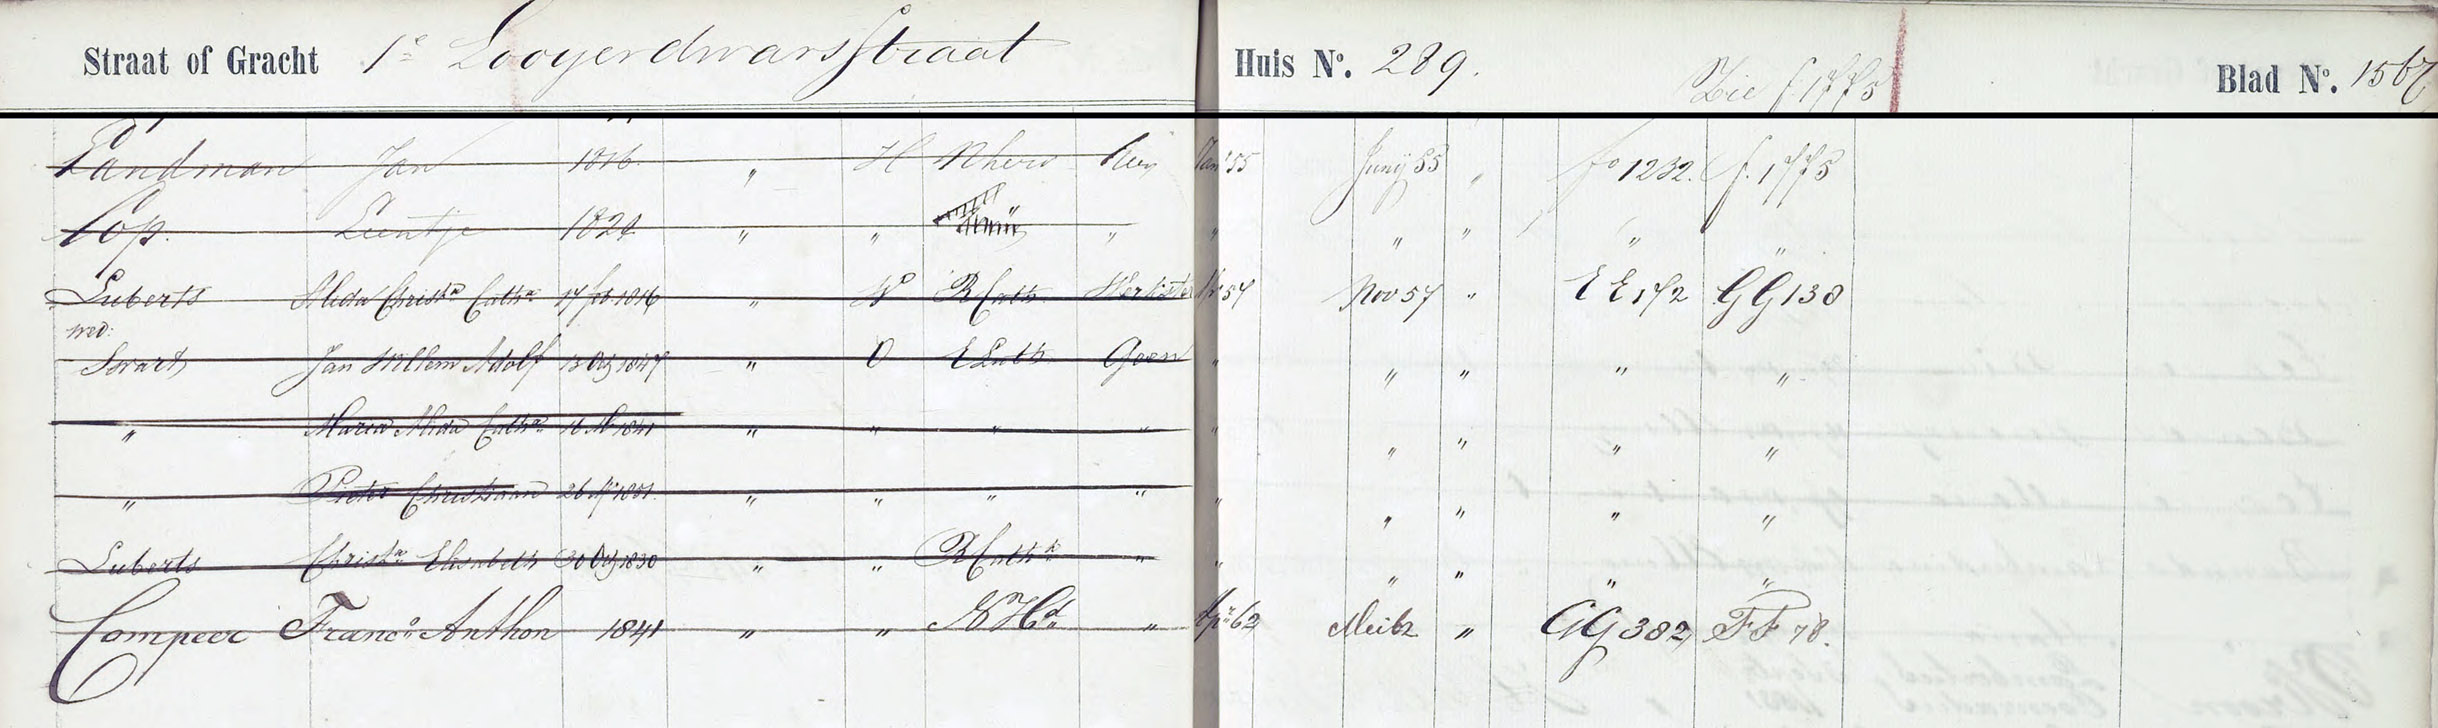 Straat of Gracht 1e Looyerdwarsstraat Huis No. 289. Zie f 1775 Blad No. 1567
Landman Jan 1816 " H Nherv Juny 55 " fo 1232. f. 1775
Cop. Leentje 1824 " " " " " " " "
Luberts Alida Christa Catha 17 feb 1816 " W R Cath 57 Nov 57 " EE 172 GG 138
wed:
Swart Jan Willem Adolf 1847 " O E Luth Geen " " " " "
" Maria Alida Catha 1841 " " " " " " " " "
" Pieter Christiaan 26 1851 " " " " " " " " "
Luberts Christa Elisabeth 30 1830 " " R Cath " " " " " "
Compeer Franco Anthon 1841 " " N Hd " Apr 62 Mei 62 " GG 382 FF 78.